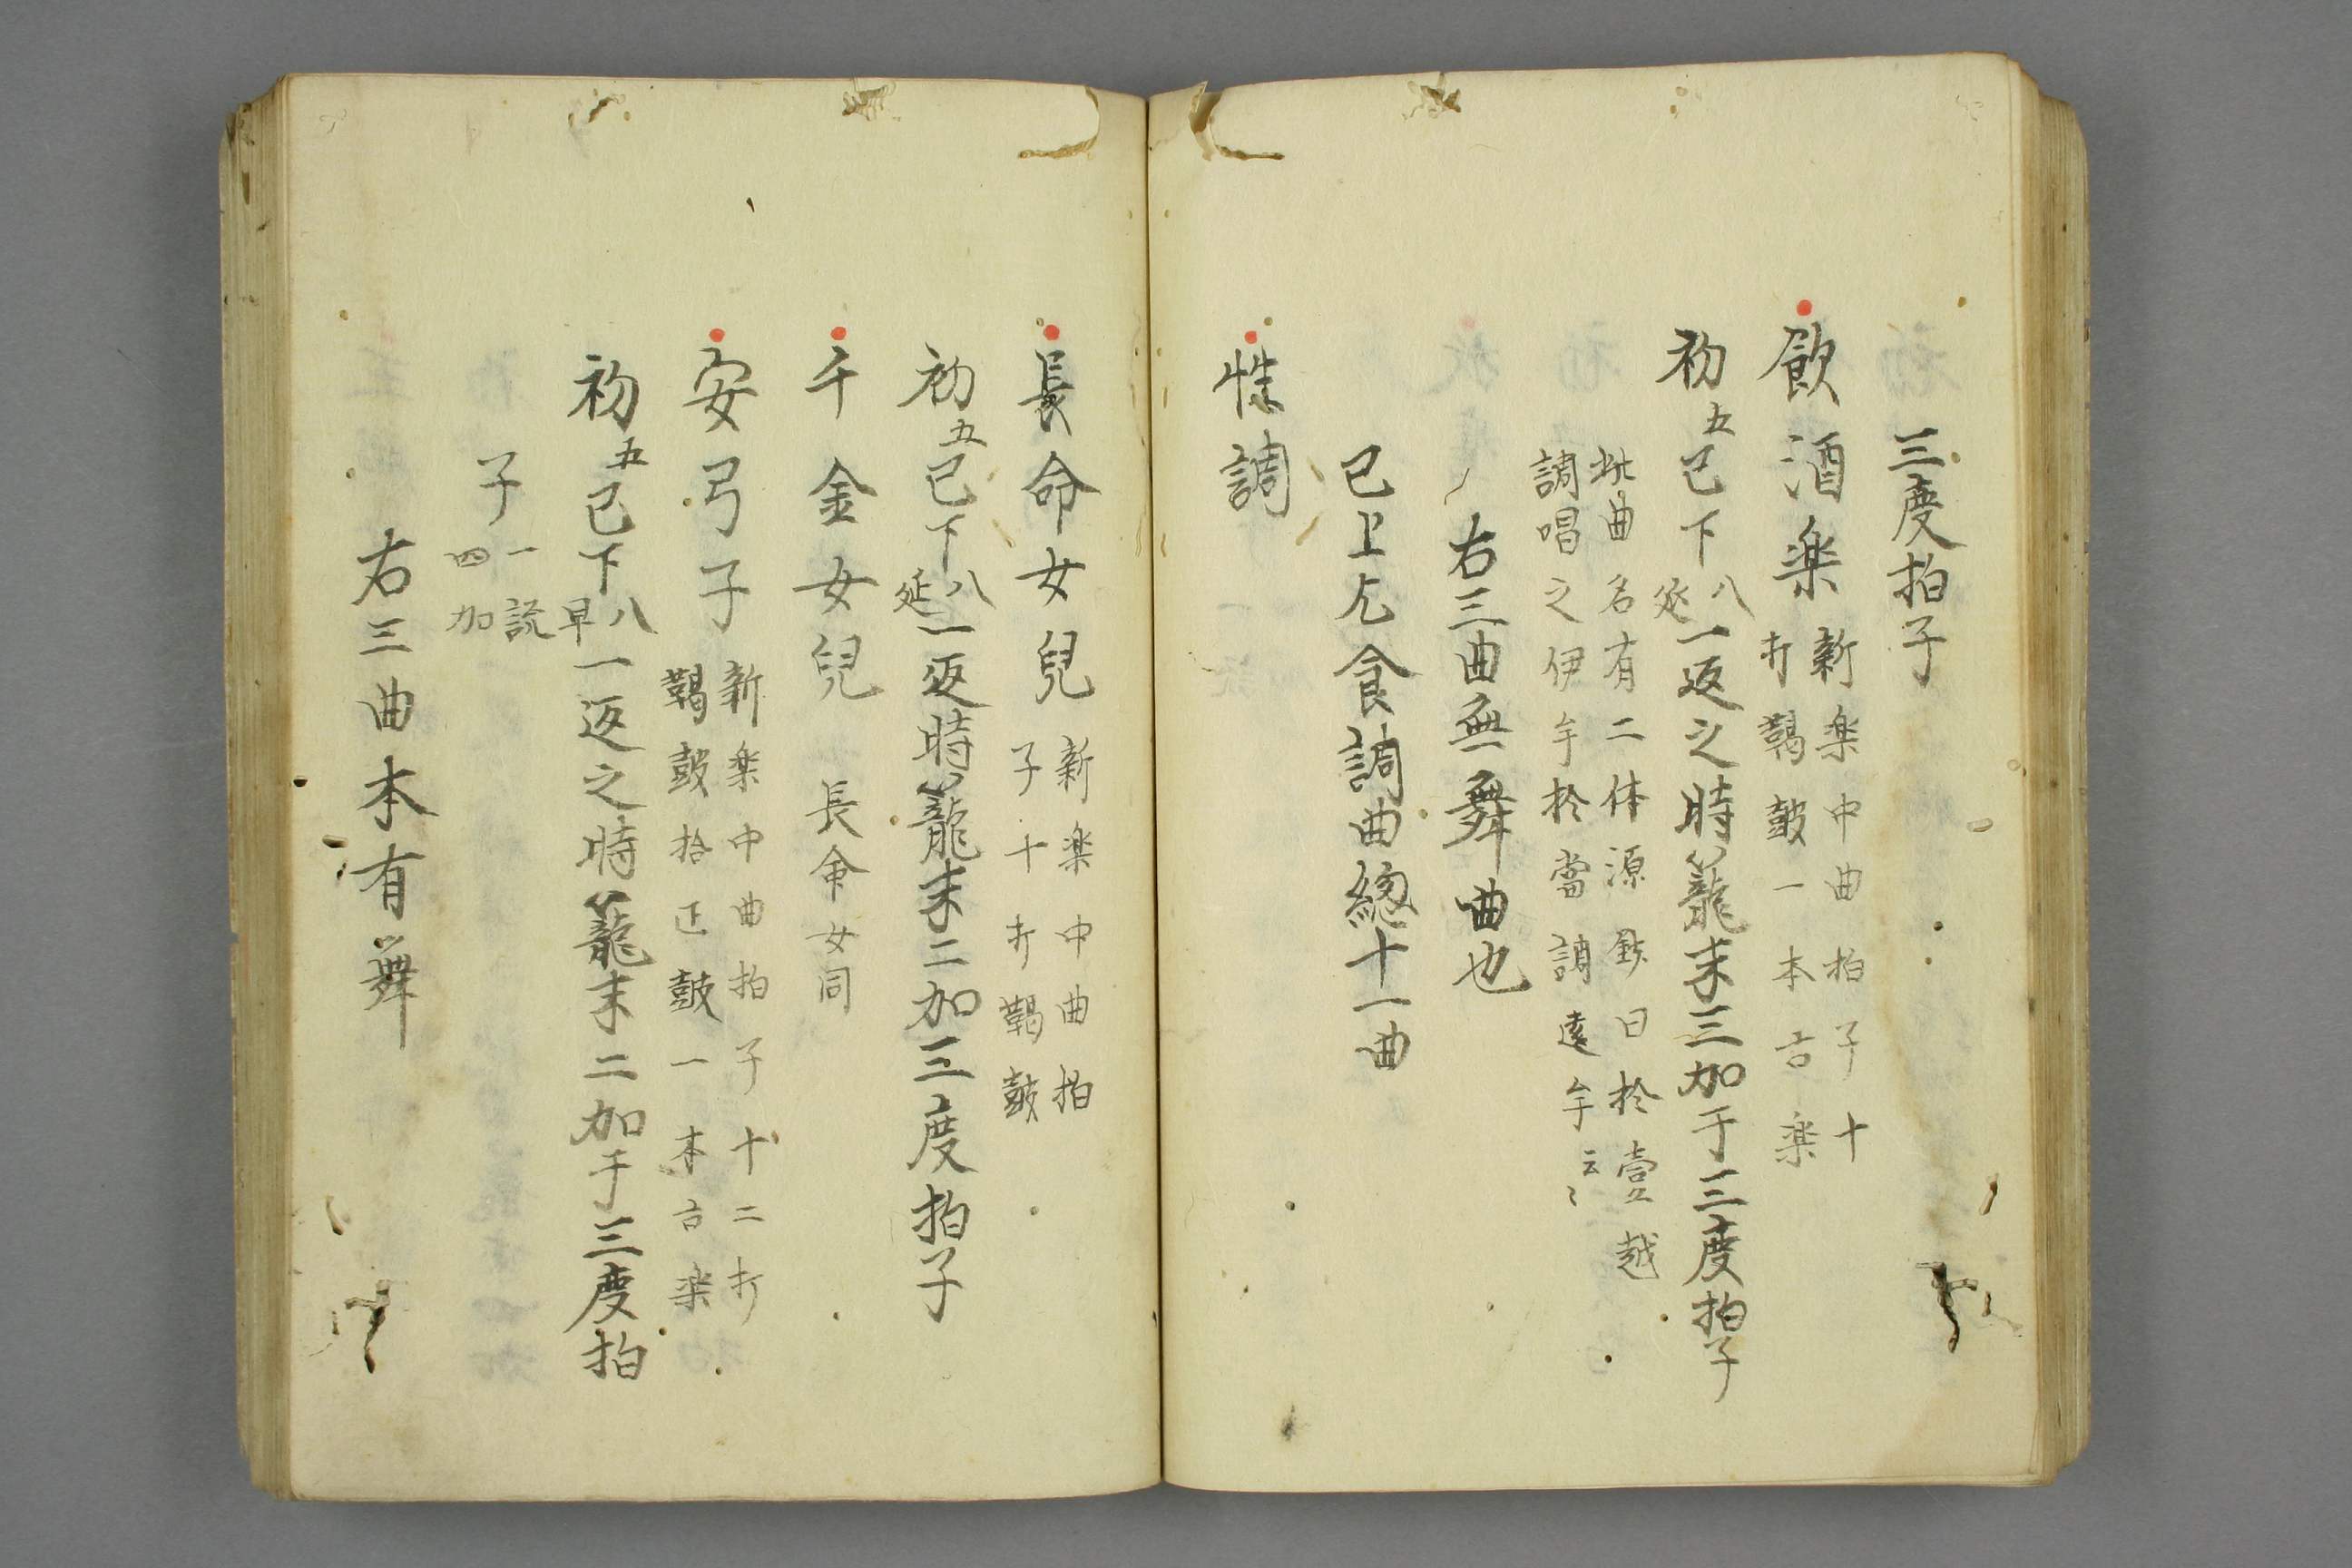 三度拍子
飲酒楽 新楽中曲拍子十
打鞨鼓一本古楽
初五已下八延一返之時籠末三加于三度拍子
此曲名有二体源
調唱之伊乎於當調遠乎云〻
右三曲無舞曲也
已上乞食調曲總十一曲
性調
長命女兒 新楽中曲拍
子十打鞨鼓
初五已下八延一返時籠末二加三度拍子
千金女兒 長命女同
安弓子 新楽中曲拍子十二打
鞨鼓拾正鼓一本古楽
初五已下八早一返之時籠末二加于三度拍
子 一説
四加
右三曲本有舞